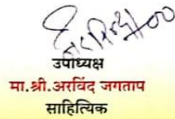 उपाध्यक्ष
मा.श्री.अरविंद जगताप
साहित्यिक